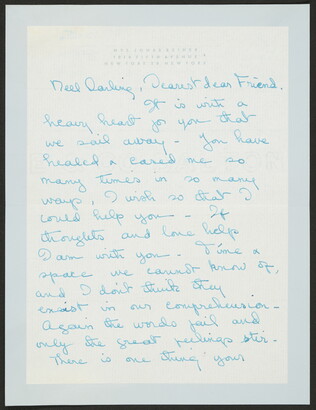 1040 FIFTH AVENUE
NEW YORK 28 NEW YORK
Mell Darling, Dearest dear Friend.
It is with a
heavy heart for you that
we sail away - You have
healed & eased me so
many times in so many
ways, I wish so that I
could help you - If
thoughts and love helps
I am with you - Time &
space we cannot know of,
and I don't think they
exist in our comprehension -
Again the words fail and
only the great feelings stir -
There is one thing your